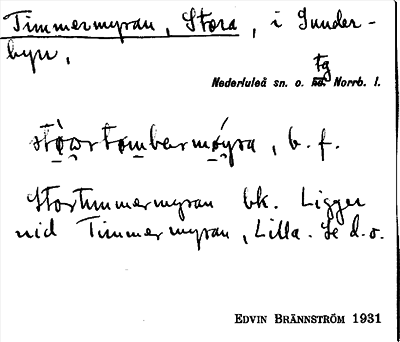 Timmermyran, Stora, i Sunder-
byn,
tg
Nederluleå sn. o. hd. Norrb. l.
stò̱a̱rtǫmbarmǫ́yra, b. f.
Stortimmermyran bk. Ligger
vid Timmermyran, Lilla. Se d.o.
EDVIN BRÄNNSTRÖM 1931